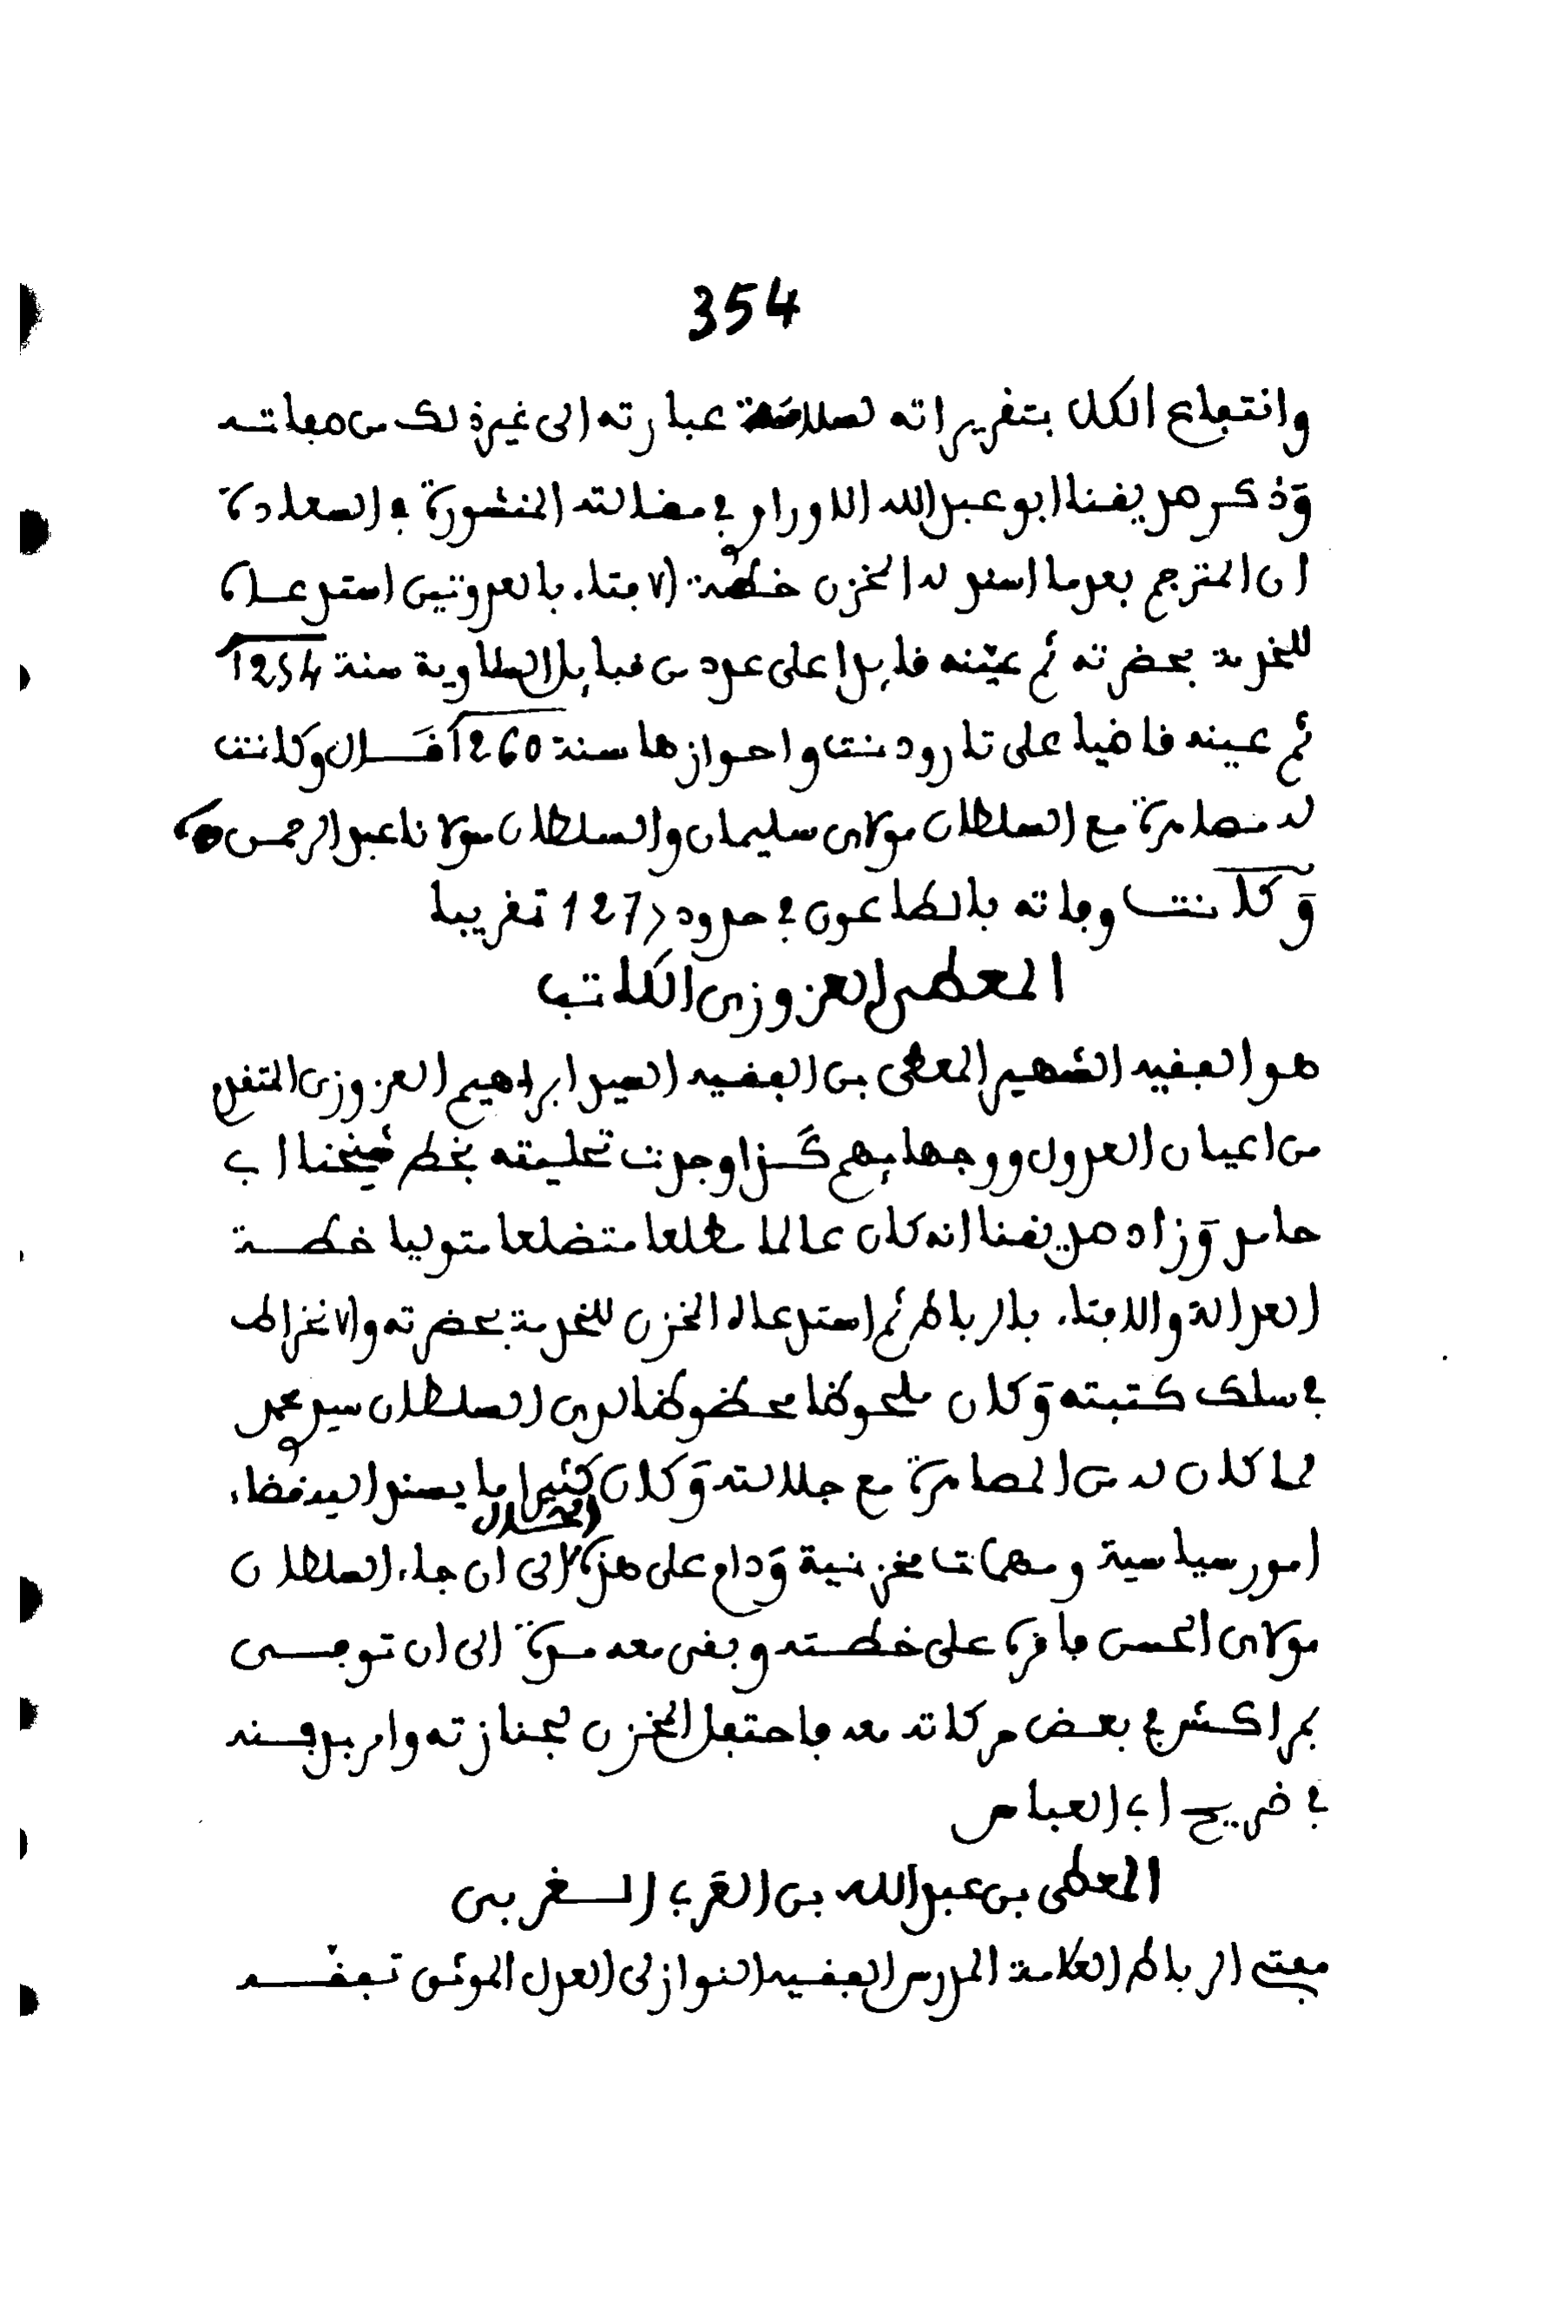 354
وانتفاع الكل بتقريراته لسلامة عبارته إلى غير ذلك من صفاته
وذكر صديقنا أبو عبد الله الاوراوي في مقالته المنشورة في السعادة
أن المترجم بعدما أسند له المخزن خطة الافتاء بالعدوتين استدعاه
للخدمة بحضرته ثم عينه قايدا على عدد من قبايل الشاوية سنة 1254
ثم عينه قاضيا على تارودنت واحوازها سنة 1260 قال وكانت
له مصاهرة مع السلطان مولاي سليمان والسلطان مولانا عبد الرحمن
وكانت وفاته بالطاعون في حدود 127 تقريبا
المعطى العزوزي الكاتب
هو الفقيه الشهير المعطى بن الفقيه السيد ابراهيم العزوزي المتقدم
من اعيان العدول ووجهايهم كذا وجدت تحليته بخط شيخنا ابي
حامد وزاد صديقنا انه كان عالما مطلعا متضلعا متوليا خطة
العدالة والافتاء بالرباط ثم استدعاه المخزن للخدمة بحضرته والانخراط
في سلك كتبته وكان ملحوظا محظوظا لدى السلطان سيدي محمد
لما كان له من المصاهرة مع جلالته وكان كثيرا ما يسند اليه قضاء
امور سياسية ومهمات مخزنية ودام على هذه الحال الى ان جاء السلطان
مولاي الحسن فاقره على خطته وبقي معه مدة الى ان توفى
بمراكش في بعض حركاته معه فاحتفل المخزن لجنازته وامر بدفنه
في ضريح ابي العباس
المعطى بن عبد الله بن العربي الغربي
مفتي الرباط العلامة المدرس الفقيه النوازلي العدل الموثق تفقه